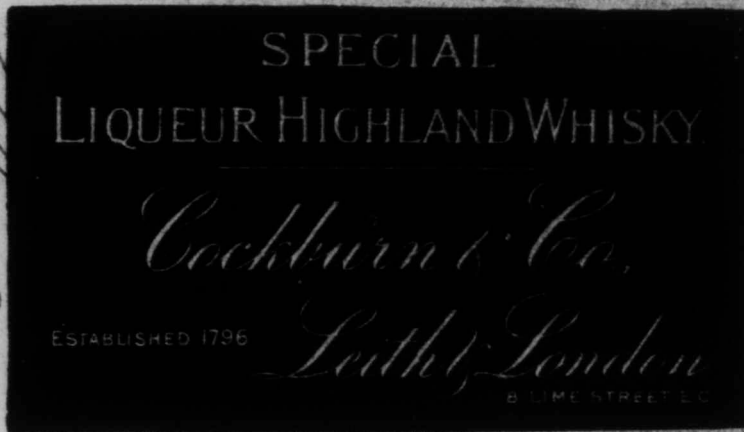 SPECIAL
LIQUEUR HIGHLAND WHISKY.
Cockburn & Co.,
ESTABLISHED 1796 Leith & London
8 LIME STREET E.C